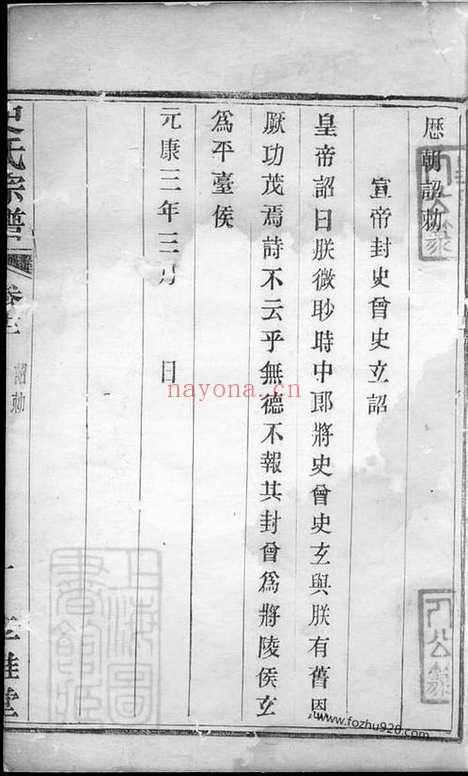 歷朝詔勅
宣帝封史曾史立詔
皇帝詔曰朕微眇時中郎將史曾史玄與朕有舊恩
厥功茂焉詩不云乎無德不報其封曾爲將陵侯玄
爲平臺侯
元康三年三月 日
史氏宗譜 卷 詔勅 一
上海圖書館藏
nayona.cn
www.fozhu920.com